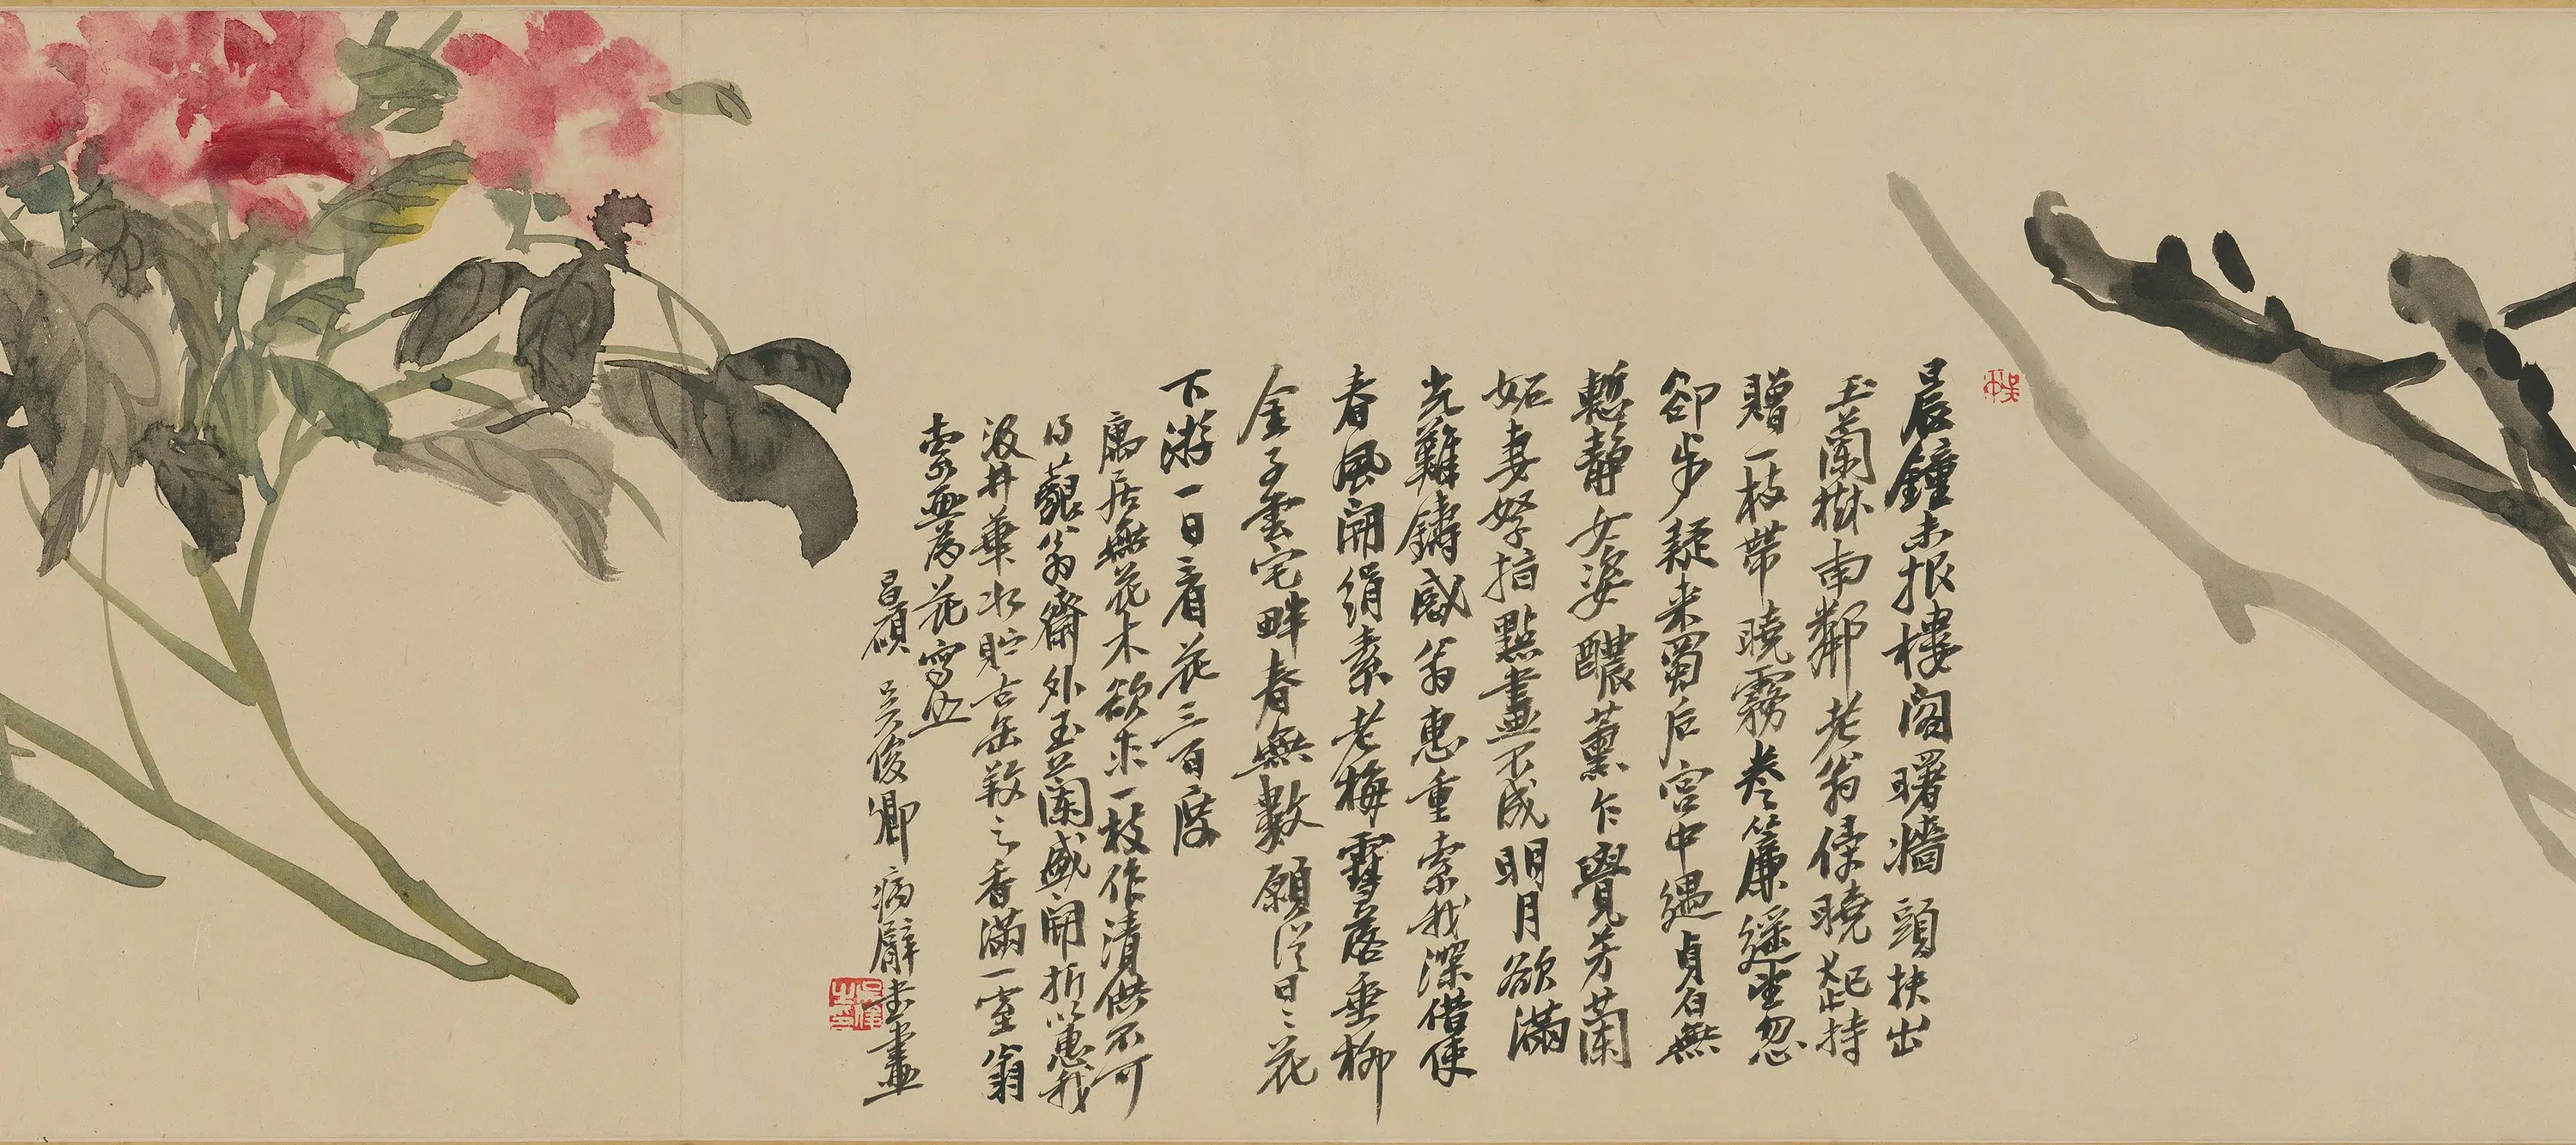 晨鐘未報樓閣曙牆頭扶出
玉蘭樹南鄰老翁倖曉起持
贈一枝帶曉霧卷簾遥望忽
卻步疑来蜀后宮中遇貞白無
慙靜女姿醲薰乍覺芳蘭
妬妻孥指點畫不成明月欲滿
光難鑄感翁惠重索我深借使
春風開絹素老梅雪落垂柳
金子雲宅畔春無數願從日〻花
下游一日看花三百度
寓居無花木欲求一枝作清供不可
得藐翁齋外玉蘭盛開折以惠我
汲井華水貯古缶敦之香滿一室翁
索画為花寫照
昌碩吳俊卿病臂書畫